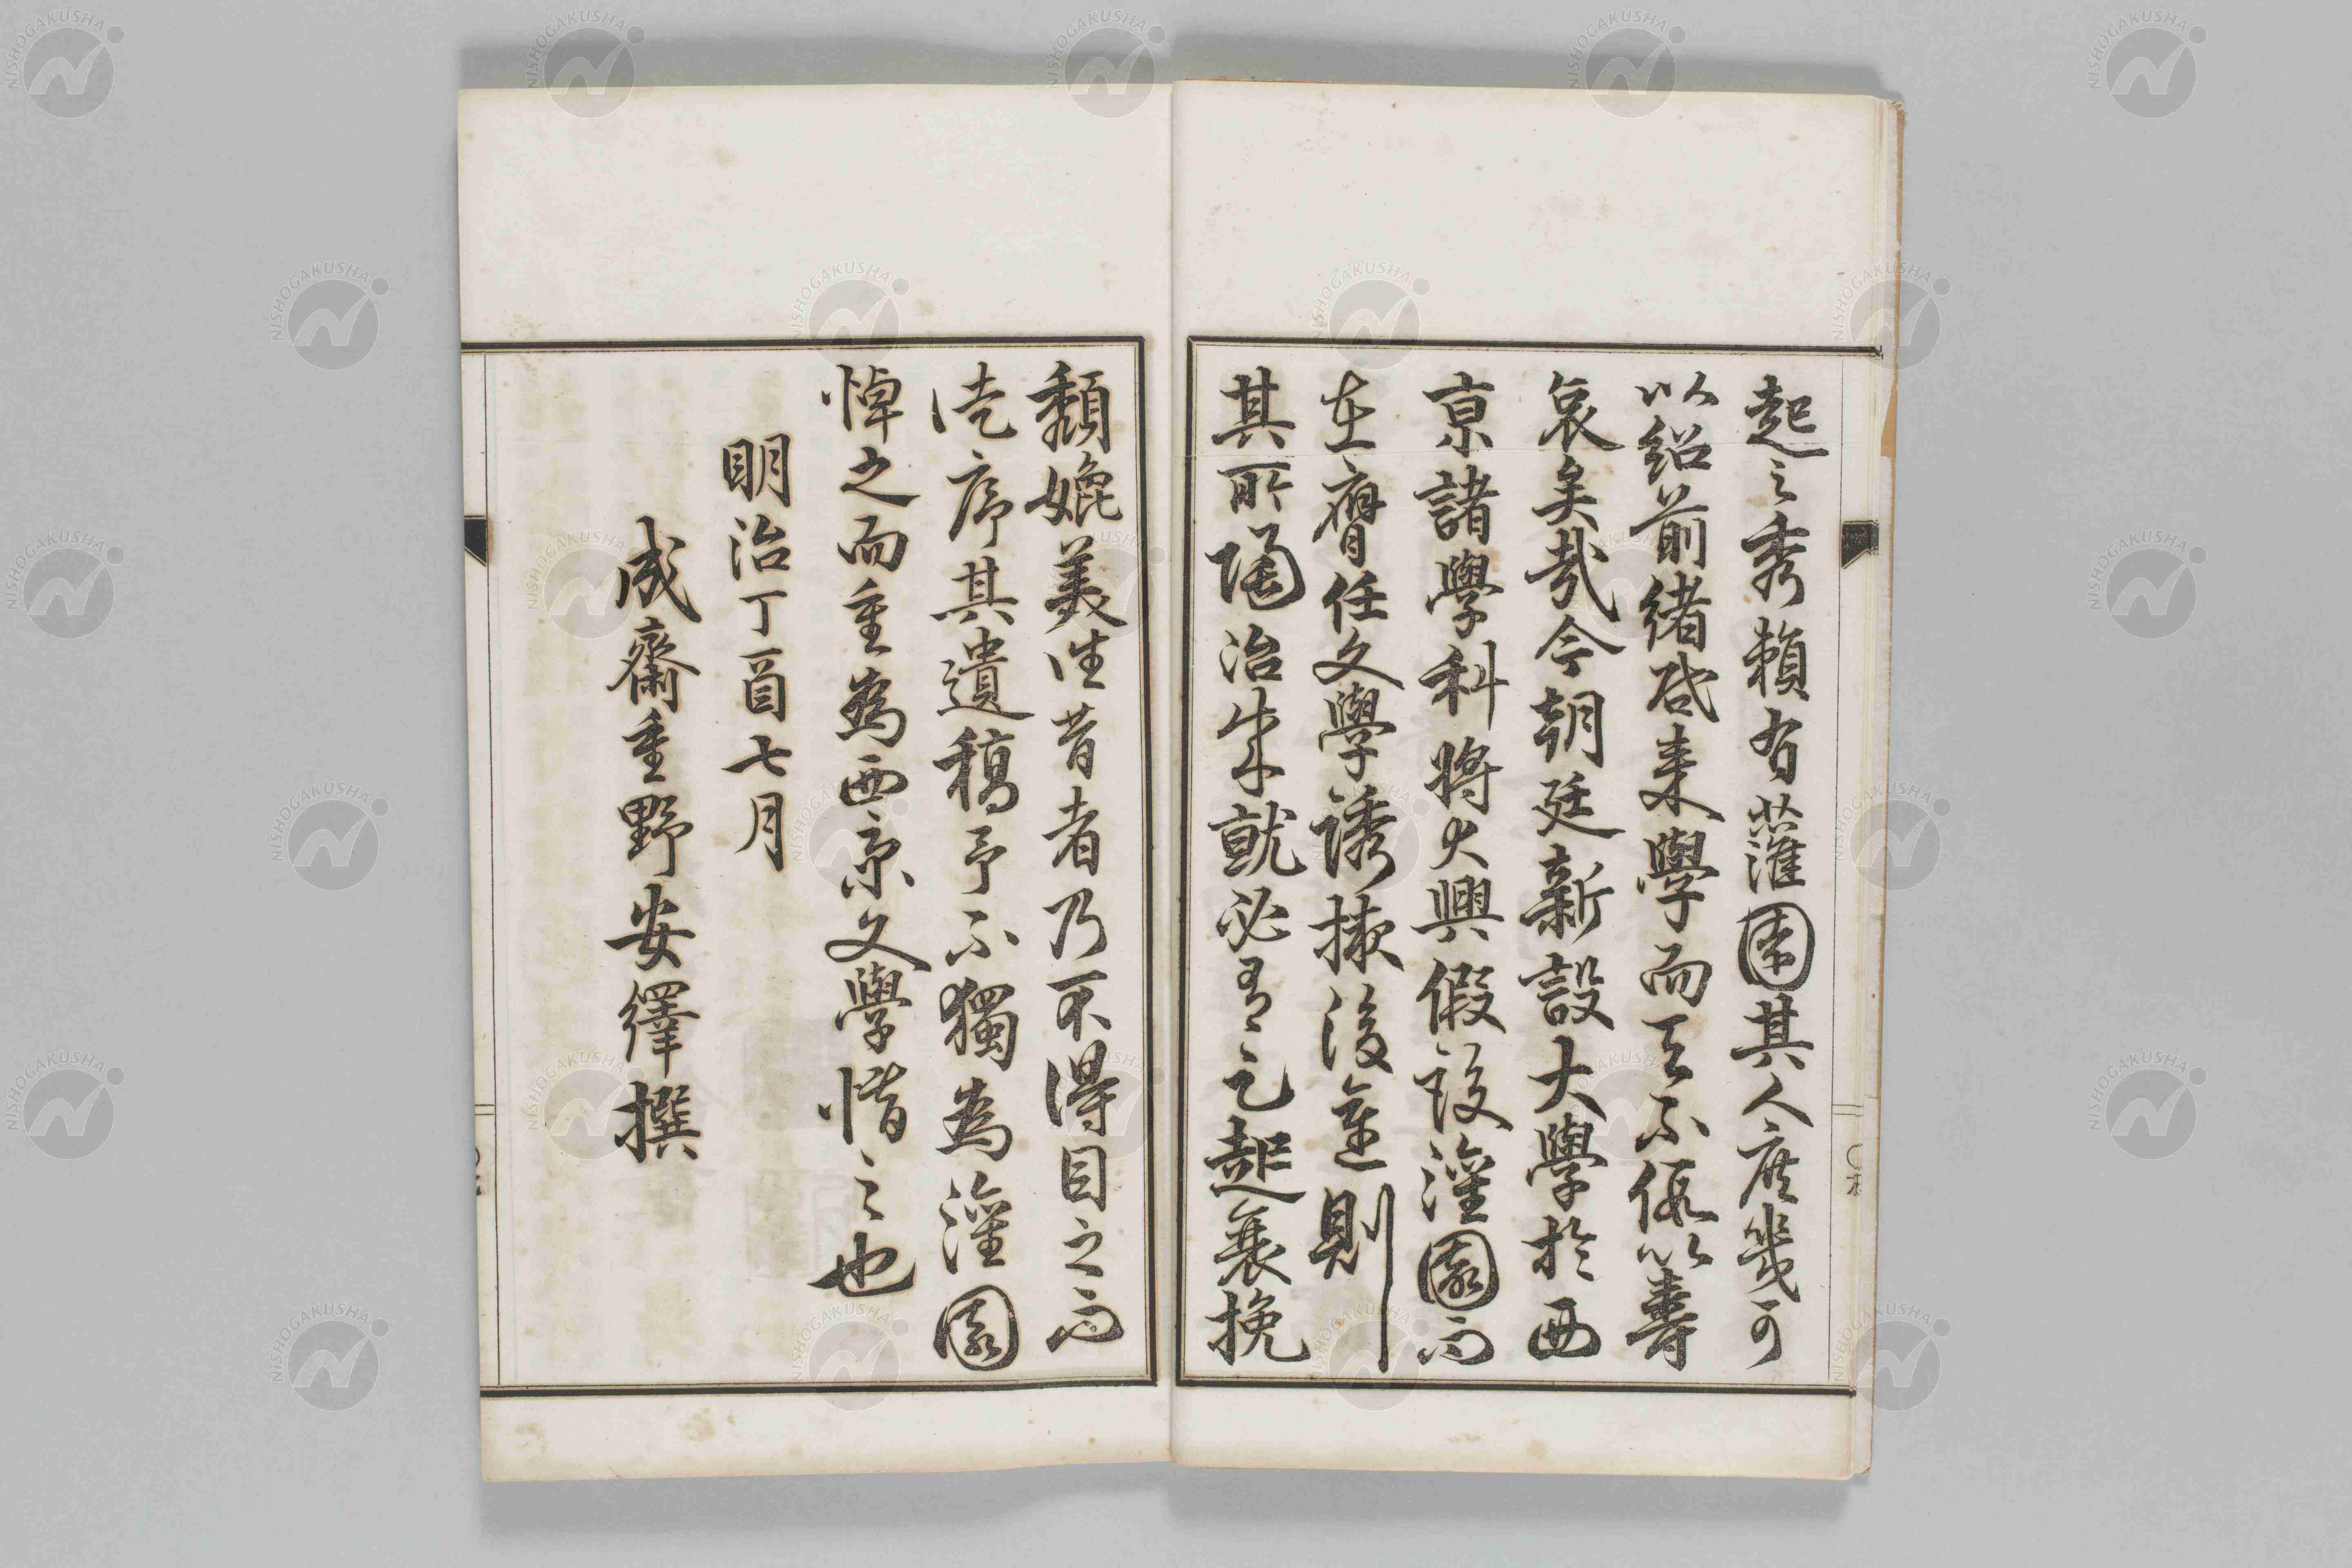 起之秀賴有蘿園其人庶幾可
以紹前緒啓來學而天不假以壽
哀矣哉今朝廷新設大學於西
京諸學科將大興假設蘿園而
在膺任文學誘掖後進則
其所陶冶成就必有已起衰挽
頹媲美往昔者乃不得目之而
徒序其遺稿予不獨為蘿園
悼之而重為西京文學惜之也
明治丁酉七月
成齋重野安繹撰
NISHOGAKUSHA